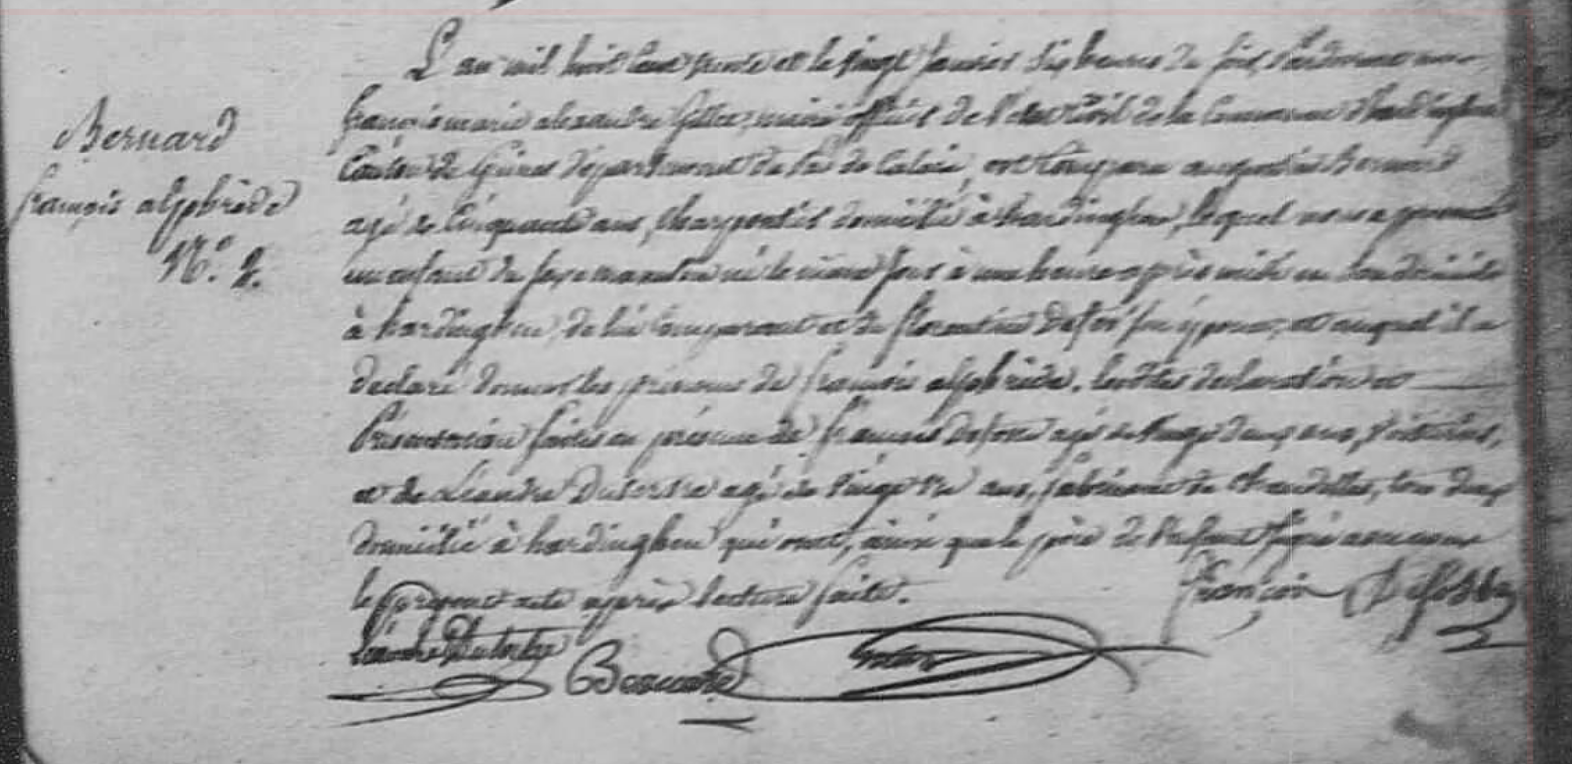 Bernard
françois alphrède
N.º 2.
L'an mil huit cent trente et le vingt janvier six heures du soir, pardevant nous
françois marie alexandre maire officier de l'état civil de la commune d'hardinghen
Canton de Guines département du Pas de Calais, est comparu augustin Bernard
agé de cinquante ans, charpentier domicilié à hardinghen, lequel nous a présenté
un enfant du sexe masculin né le même jour à une heure après midi en son domicile
à hardinghen, de lui comparant et de florentine son épouse, et auquel il a
déclaré donner les prénoms de françois alphrède. lesdites déclaration et
Présentation faites en présence de françois agé de vingt deux ans,
et de Léandre Dutertre agé de vingt ans, fabricant de chandelles, tous deux
domicilié à hardinghen qui ont, ainsi que le père de l'enfant signé avec nous
le present acte après lecture faite.
françois
Léandre Dutertre
Bernard